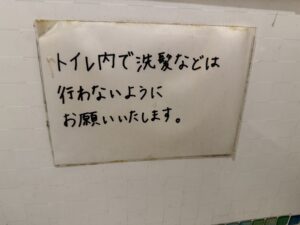 トイレ内で洗髪などは
行わないように
お願いいたします。